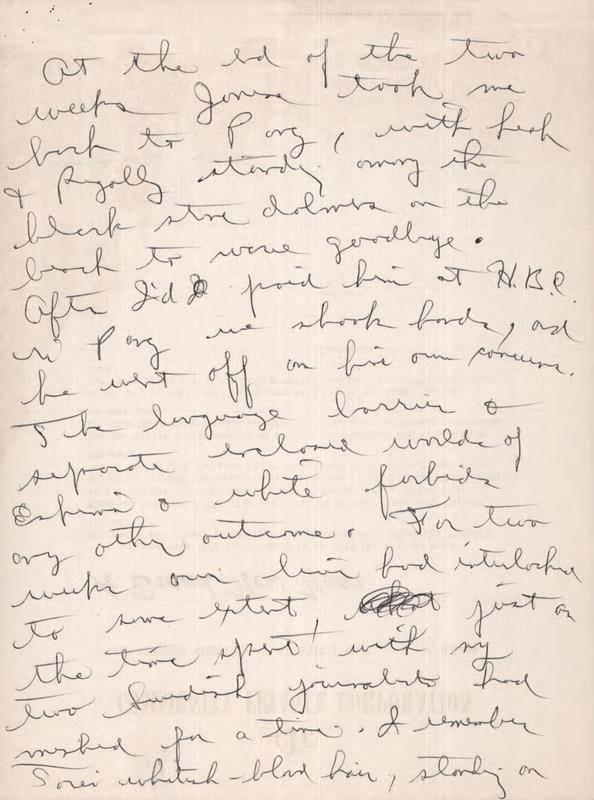 At the end of the two
weeks Jonesee took me
back to Pang, with Leah
& Regally standing among the
black stone dolmens on the
beach to wave goodbye.
After I'd paid him at H.B.C.
in Pang we shook hands, and
he went off on his own concerns.
The language barrier &
separate enclosed worlds of
Eskimo & white forbids
any other outcome. For two
weeks our lives had interlocked
to some extent, just as
the time spent with my
two Swedish journalists had
meshed for a time. I remember
whitish-blond hair, standing on